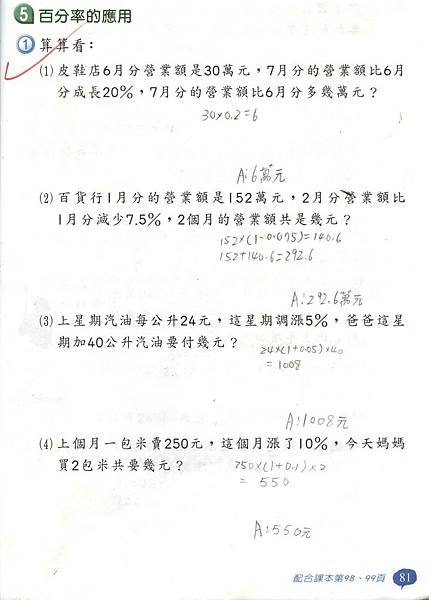 5 百分率的應用
1 算算看：
(1) 皮鞋店6月分營業額是30萬元，7月分的營業額比6月
分成長20%，7月分的營業額比6月分多幾萬元？
30×0.2=6
A:6萬元
(2) 百貨行1月分的營業額是152萬元，2月分營業額比
1月分減少7.5%，2個月的營業額共是幾元？
152×(1-0.075)=140.6
152+140.6=292.6
A:292.6萬元
(3) 上星期汽油每公升24元，這星期調漲5%，爸爸這星
期加40公升汽油要付幾元？
24×(1+0.05)×40
=1008
A:1008元
(4) 上個月一包米賣250元，這個月漲了10%，今天媽媽
買2包米共要幾元？
250×(1+0.1)×2
=550
A:550元
配合課本第98、99頁 81